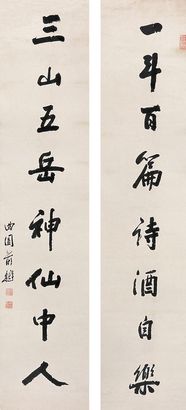 一斗百篇诗酒自樂
三山五岳神仙中人
曲園俞樾